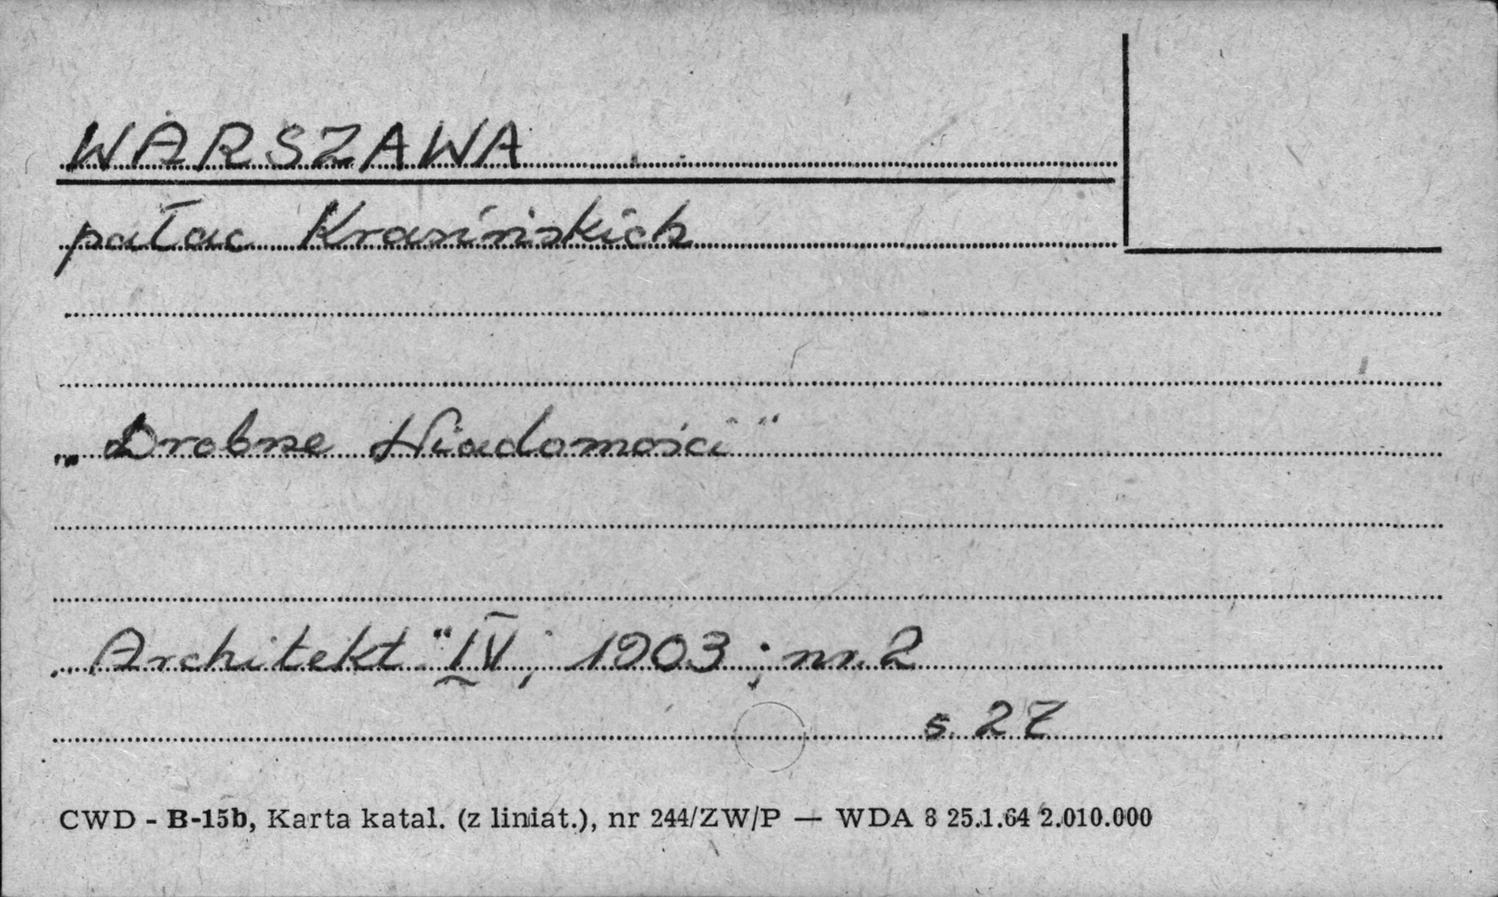 WARSZAWA
pałac Krasińskich
„Drobne Wiadomości"
„Architekt" IV, 1903; nr. 2
s. 27
CWD - B-15b, Karta katal. (z liniat.), nr 244/ZW/P — WDA 8 25.1.64 2.010.000